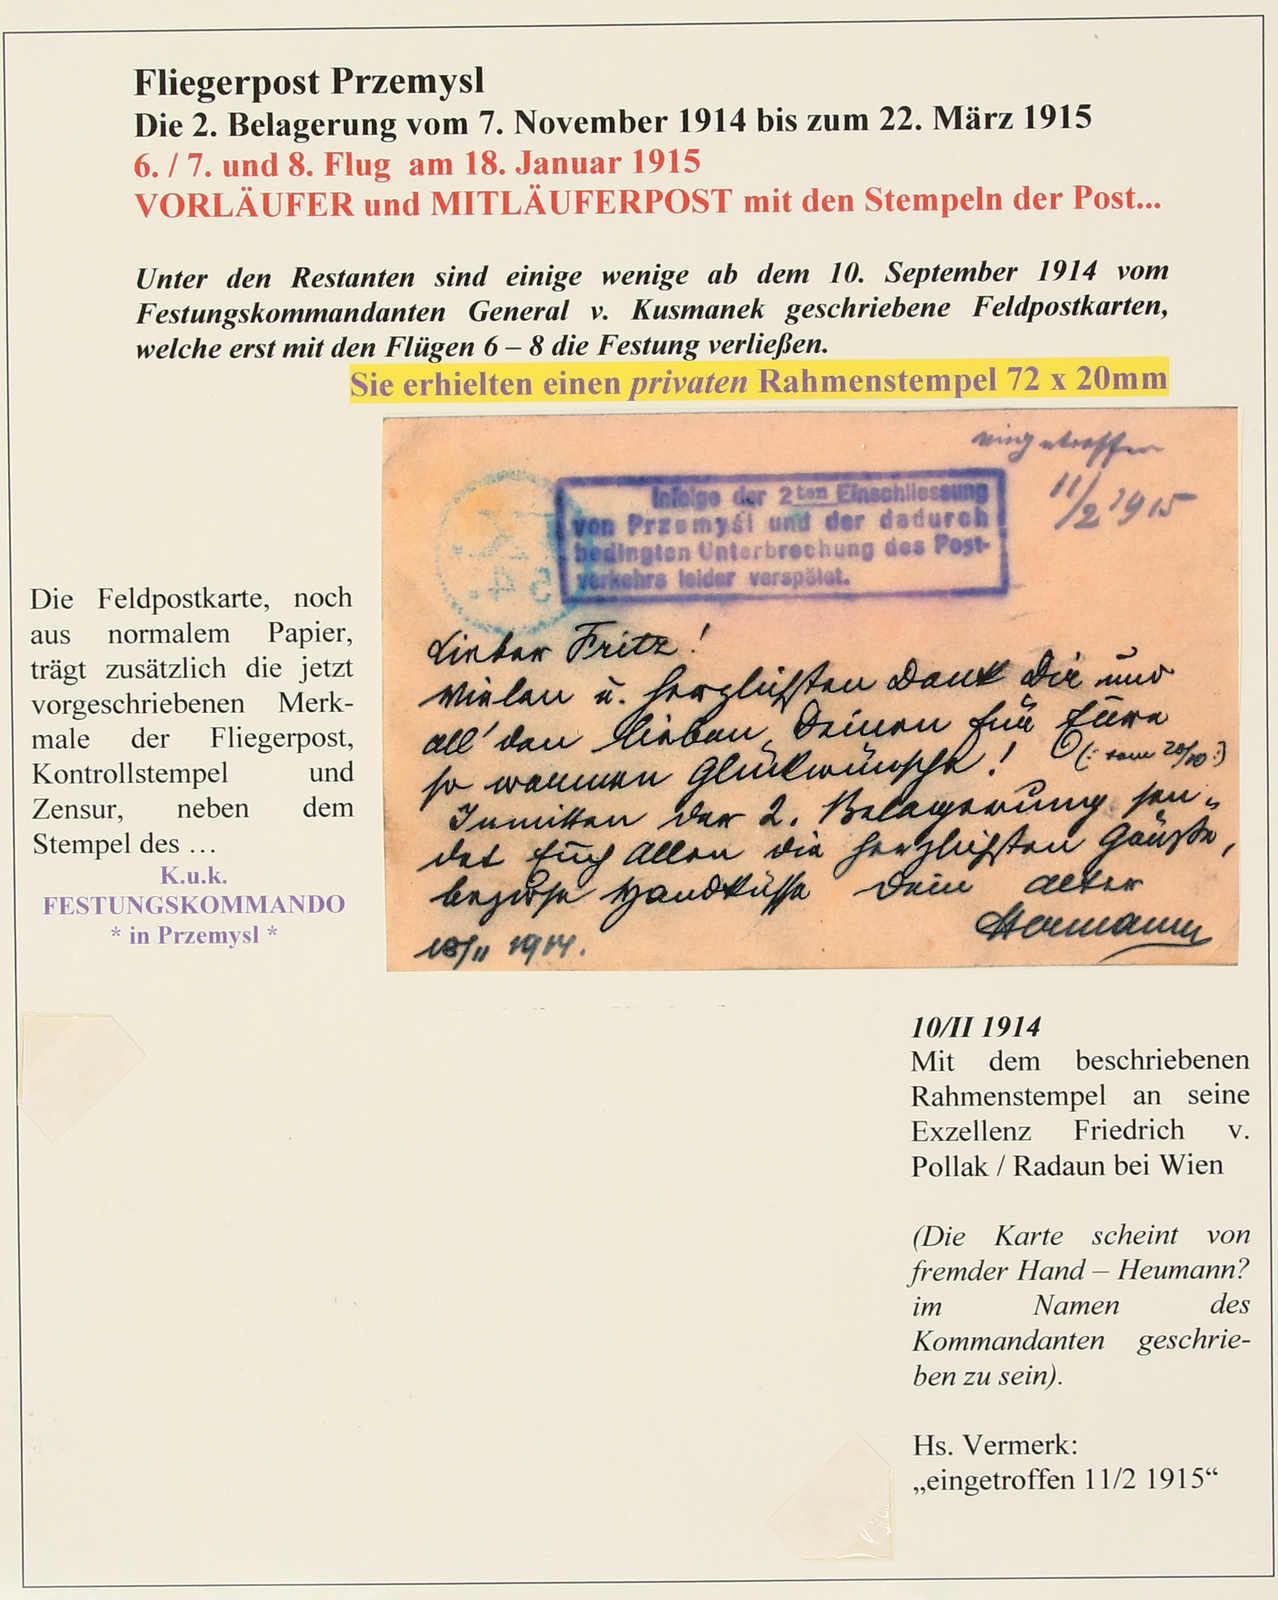 Fliegerpost Przemysl
Die 2. Belagerung vom 7. November 1914 bis zum 22. März 1915
6. / 7. und 8. Flug am 18. Januar 1915
VORLÄUFER und MITLÄUFERPOST mit den Stempeln der Post...
Unter den Restanten sind einige wenige ab dem 10. September 1914 vom
Festungskommandanten General v. Kusmanek geschriebene Feldpostkarten,
welche erst mit den Flügen 6 – 8 die Festung verließen.
Sie erhielten einen privaten Rahmenstempel 72 x 20mm
eingetroffen
11/2 1915
Infolge der 2ten Einschliessung
von Przemyśl und der dadurch
bedingten Unterbrechung des Post-
verkehrs leider verspätet.
Lieber Fritz!
Vielen u. herzlichsten Dank Dir und
all' den lieben Deinen für Eure
so warmen Glückwünsche! (: vom 20/10 :)
Inmitten der 2. Belagerung sen-
det Euch Allen die herzlichsten Grüße,
bezw. Handküsse Dein alter
Hermann
10/II 1914.
Die Feldpostkarte, noch
aus normalem Papier,
trägt zusätzlich die jetzt
vorgeschriebenen Merk-
male der Fliegerpost,
Kontrollstempel und
Zensur, neben dem
Stempel des …
K.u.k.
FESTUNGSKOMMANDO
* in Przemysl *
10/II 1914
Mit dem beschriebenen
Rahmenstempel an seine
Exzellenz Friedrich v.
Pollak / Radaun bei Wien
(Die Karte scheint von
fremder Hand – Heumann?
im Namen des
Kommandanten geschrie-
ben zu sein).
Hs. Vermerk:
„eingetroffen 11/2 1915“